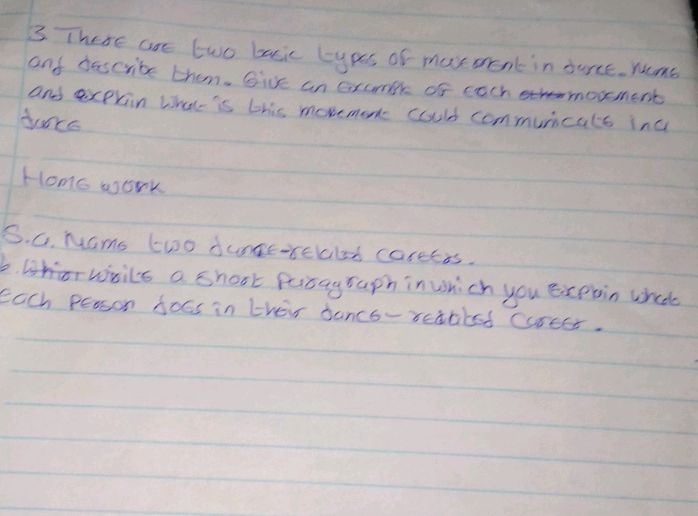 3 There are two basic types of movement in dance. Name
and describe them. Give an example of each movement
and explain what is this movement could communicate in a
dance
Home work
5.a. Name two dance-related careers.
b. write a short paragraph in which you explain what
each person does in their dance-related career.